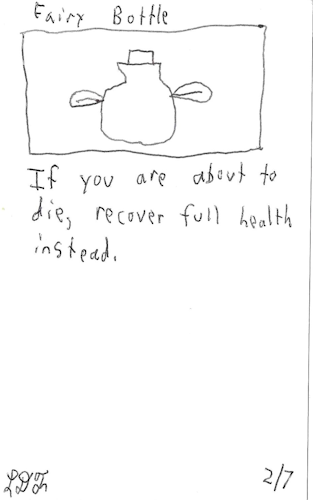 Fairy Bottle
If you are about to
die, recover full health
instead.
2/7